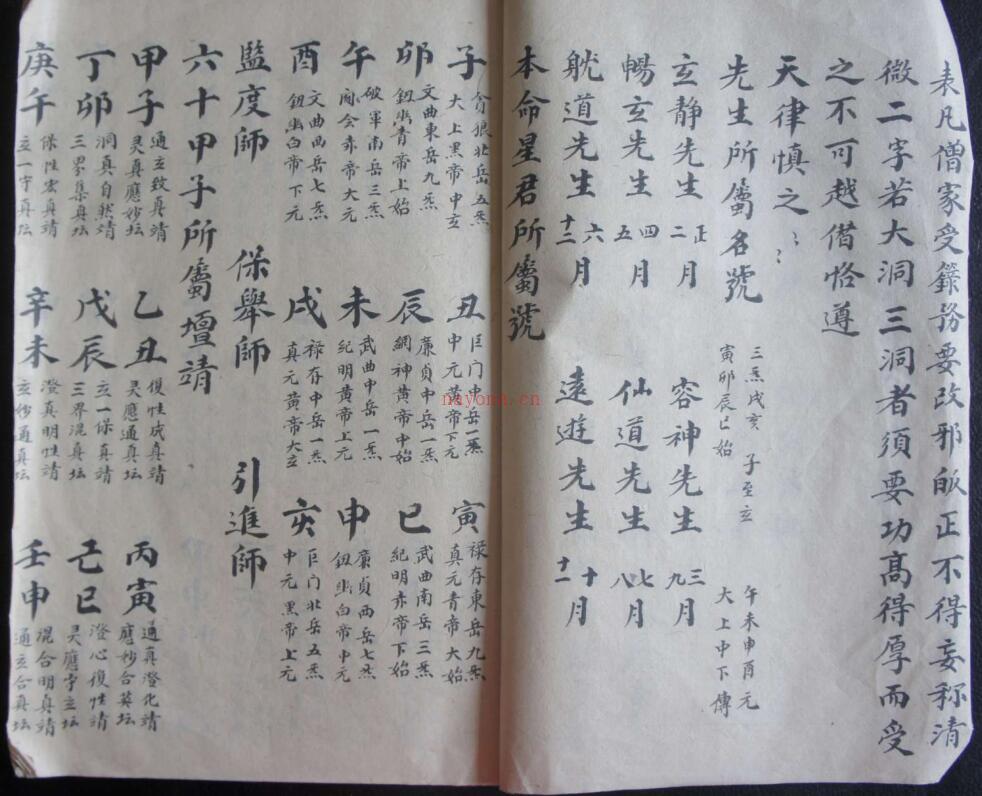 表凡僧家受籙務要改邪皈正不得妄称清
微二字若大洞三洞者須要功髙得厚而受
之不可越借恪遵
天律慎之〻〻
先生所屬名號
三炁戌亥 子至玄 午未申酉元
寅卯辰巳始 大上中下傳
玄静先生 正二月 容神先生 三九月
暢玄先生 四五月 仙道先生 七八月
䠶道先生 六十二月 遠遊先生 十十一月
本命星君所屬號
子 貪狼北岳五炁 大上黑帝中玄 丑 巨门中岳一炁 中元黄帝下元 寅 禄存東岳九炁 真元青帝大始
卯 文曲東岳九炁 鈕幽青帝上始 辰 廉貞中岳一炁 綱神黄帝中始 巳 武曲南岳三炁 紀明赤帝下始
午 破軍南岳三炁 赤帝大元 未 武曲中岳一炁 紀明黄帝上元 申 廉貞西岳七炁 鈕幽白帝中元
酉 文曲西岳七炁 鈕幽白帝下元 戌 禄存中岳一炁 真元黄帝大玄 亥 巨门北岳五炁 中元黑帝上元
監度師 保舉師 引進師
六十甲子所屬壇靖
甲子 通玄致真靖 灵真應妙坛 乙丑 復性成真靖 灵應通真坛 丙寅 通真澄化靖 應妙合英坛
丁卯 洞真自然靖 三界集真坛 戊辰 立一保真靖 三界混真坛 己巳 澄心復性靖 灵應守玄坛
庚午 保性宏真靖 立一守真坛 辛未 澄真明性靖 玄妙通真坛 壬申 混合明真靖 通玄合真坛
nayona.cn